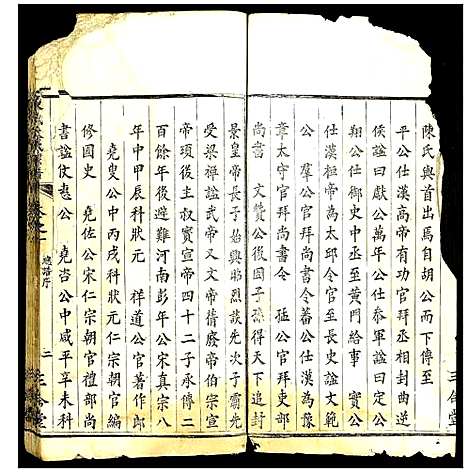 陳氏與首出馬自胡公而下傳至
平公仕漢高帝有功官拜丞相封曲逆
侯諡曰獻公萬年公仕泰軍諡曰定公
翔公仕御史中丞至黃門給事　寔公
仕漢桓帝為太邱令官至長史諡文範
公　羣公官拜尚書令蕃公仕漢為豫
章太守官拜尚書令　猛公官拜吏部
尚書　文贊公後因子孫得天下追封
景皇帝長子始興昭烈談先次子霸先
受梁禪諡武帝又文帝蒨廢帝伯宗宣
帝頊後主叔寶宣帝四十二子承傳二
百餘年後避難河南彭年公宋真宗八
年中甲辰科狀元　祥道公官著作郎
　堯叟公中丙戌科狀元仁宗朝官編
修國史　堯佐公宋仁宗朝官禮部尚
書諡忠公　堯咨公中咸平辛未科
族譜序
二
三
堂